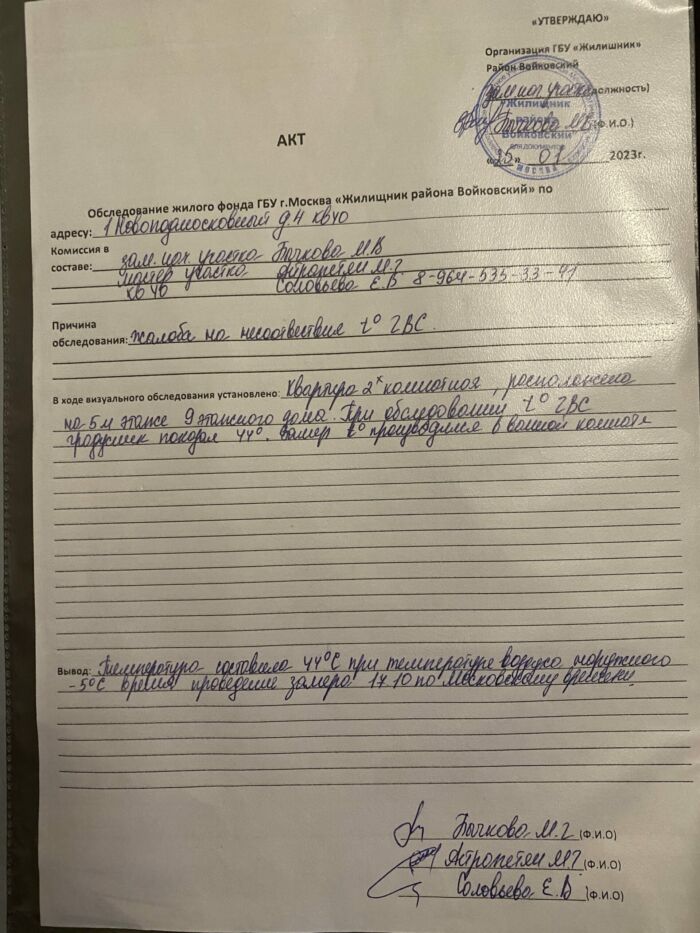 «УТВЕРЖДАЮ»
Организация ГБУ «Жилишник»
Район Войковский
зам нач. участка (должность)
Бычкова М.В (Ф.И.О.)
«25» 01 2023г.
Жилищник
район
Войковский
ДЛЯ ДОКУМЕНТОВ
МОСКВА
АКТ
Обследование жилого фонда ГБУ г.Москва «Жилищник района Войковский» по
адресу: 1 Новоподмосковный д 4 кв 40
Комиссия в
составе: зам. нач. участка Бычкова М.В
мастер участка Астропетян М.Г
кв 40 Соловьева Е.В 8-964-535-33-41
Причина
обследования: жалоба на несоотвествия t° ГВС.
В ходе визуального обследования установлено: Квартира 2х комнатная, расположена
на 5м этаже 9 этажного дома. При обследований t° ГВС
градусник показал 44°. Замер t° производился в ванной комнате
Вывод: Температура составила 44°С при температуре воздуха наружного
-5°С время проведение замера 17.10 по московскому времени.
Бычкова М.Г (Ф.И.О)
Астропетян М.Г (Ф.И.О)
Соловьева Е.В (Ф.И.О)